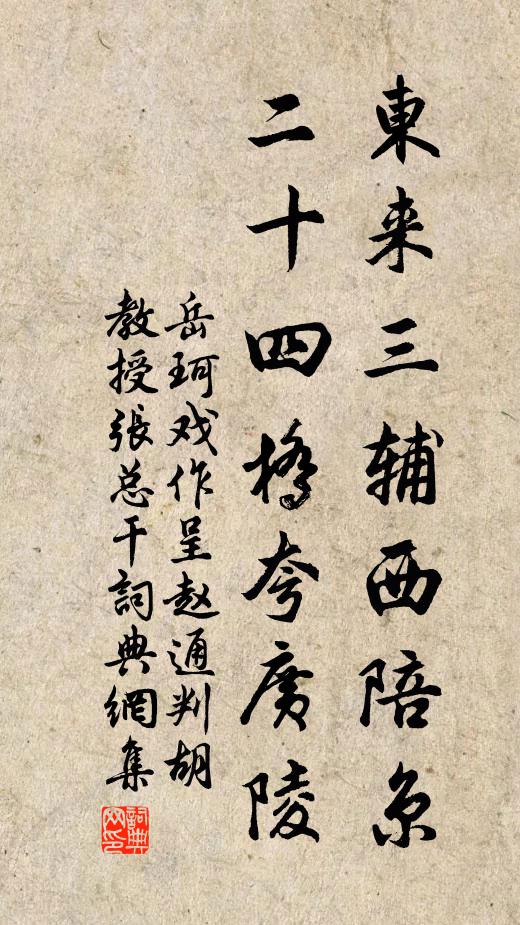 東来三辅西陪京
二十四橋夸廣陵
岳珂戏作呈赵通判胡
教授張总干詞典網集
詞典网印